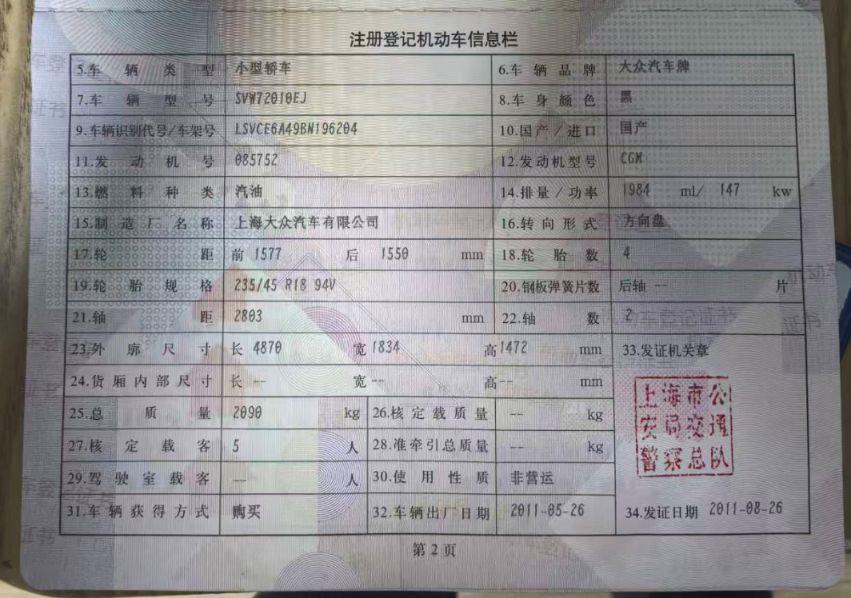 注册登记机动车信息栏
5.车辆类型 小型轿车 6.车辆品牌 大众汽车牌
7.车辆型号 SVW72010EJ 8.车身颜色 黑
9.车辆识别代号/车架号 LSVCE6A49BN196204 10.国产/进口 国产
11.发动机号 085752 12.发动机型号 CGM
13.燃料种类 汽油 14.排量/功率 1984 ml/ 147 kw
15.制造厂名称 上海大众汽车有限公司 16.转向形式 方向盘
17.轮距 前 1577 后 1550 mm 18.轮胎数 4
19.轮胎规格 235/45 R18 94V 20.钢板弹簧片数 后轴 -- 片
21.轴距 2803 mm 22.轴数 2
23.外廓尺寸 长 4870 宽 1834 高 1472 mm 33.发证机关章
24.货厢内部尺寸 长 -- 宽 -- 高 -- mm
上海市公
安局交通
警察总队
25.总质量 2090 kg 26.核定载质量 -- kg
27.核定载客 5 人 28.准牵引总质量 -- kg
29.驾驶室载客 -- 人 30.使用性质 非营运
31.车辆获得方式 购买 32.车辆出厂日期 2011-05-26 34.发证日期 2011-08-26
第 2 页